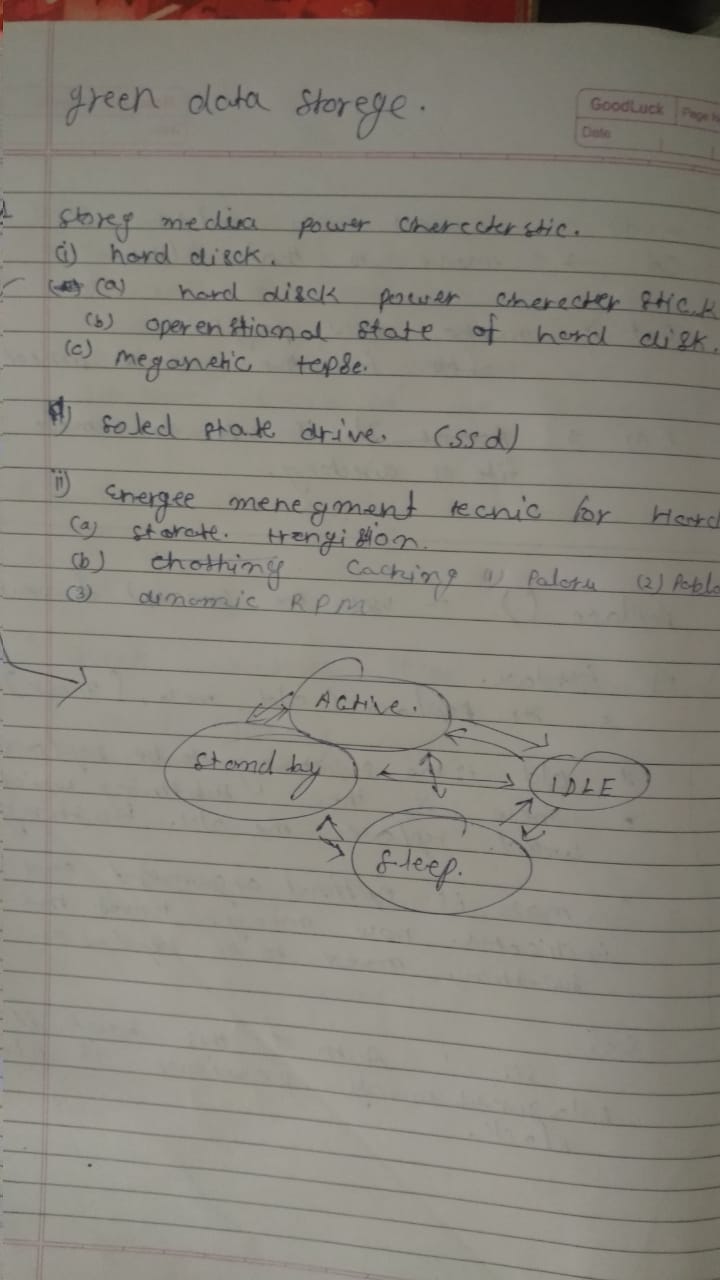 green data storege.
GoodLuck
Page
Date
storeg media power cherecterstic.
(i) hard disck.
(a) hard disck power cherecter stick
(b) operenstional state of hard disk.
(c) meganetic tepse.
soled state drive. (ssd)
ii) Energee menegment tecnic for Hard
(a) starate. trengistion.
(b) chothing Cacking 1) Paloru (2) Pablo
(3) dynomic RPM
Active.
Stand by
IDLE
Sleep.